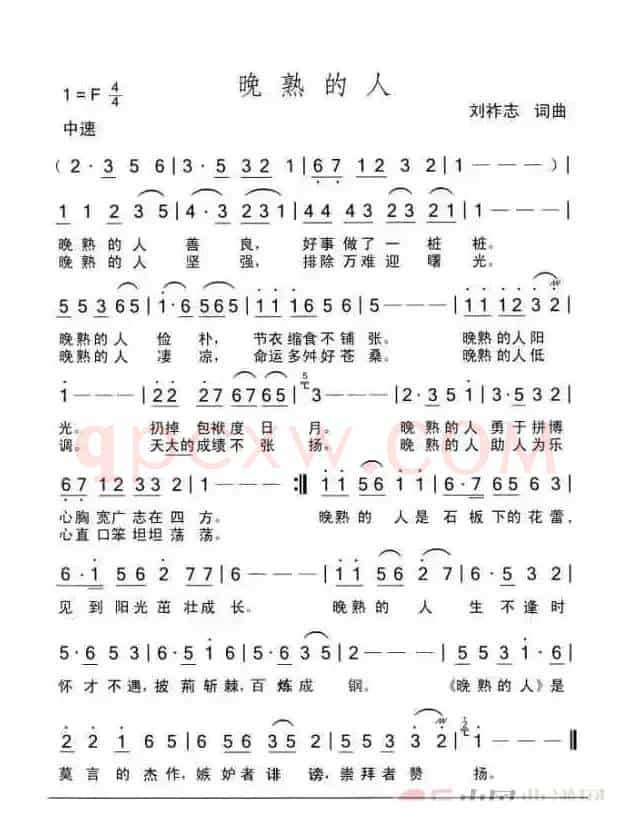 晚熟的人
1=F 4/4
刘祚志 词曲
中速
(2·3 5 6|3·5 32 1|67 12 3 2|1———)|
1 1 2 3 5|4·3 231|44 43 23 21|1———|
晚熟的人 善 良, 好事 做了 一 桩 桩。
晚熟的人 坚 强, 排除 万难 迎 曙 光。
5 5 3 5 65|1·6 565|11 1656 52|5———|11 12 32|
晚熟的人 俭 朴, 节衣 缩食 不 铺 张。 晚熟的人阳
晚熟的人 凄 凉, 命运 多舛 好 苍 桑。 晚熟的人低
1———|22 27 6765|3———|2·3 5 1|3·5 32|
光。 扔掉 包袱 度 日 月。 晚 熟 的 人 勇 于 拼 博
调。 天大的成绩 不 张 扬。 晚 熟 的 人 助 人 为 乐
67 12 33 2|1———:‖11 56 11|6·7 6 5 6|
心胸 宽广 志 在 四 方。 晚熟的 人 是 石 板 下的 花 蕾,
心直 口笨 坦坦 荡 荡。
6·1 56 52|6———|11 56 2 7|6·5 1 2|
见 到 阳光 茁 壮成 长。 晚熟的 人 生 不 逢 时
5·6 5 3|6·5 1 6|5·6 5 3|2———|5 5 3 1|
怀 才 不 遇,披 荆 斩 棘,百 炼 成 钢。 《晚熟的人》是
2 2 1 6 5|5·5 3 5|6·5 3 2|1———‖
莫言 的 杰 作,嫉 妒 者 诽 谤,崇 拜 者 赞 扬。
qpcxw.com